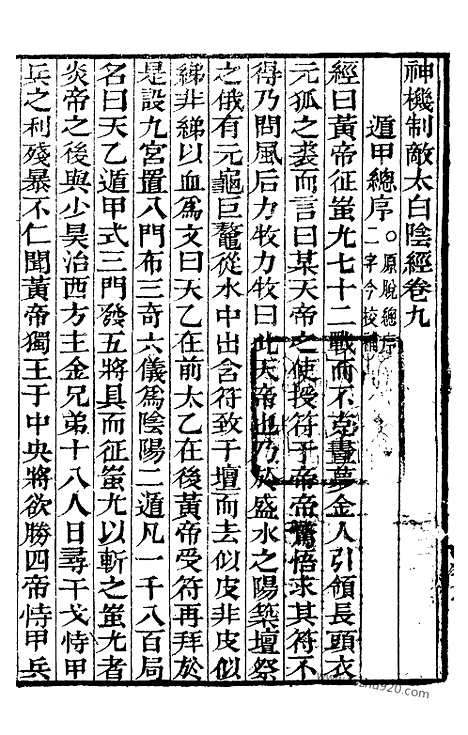 神機制敵太白陰經卷九
遁甲總序〇原脫總序二字今校補
經曰黃帝征蚩尤七十二戰而不克晝夢金人引領長頭衣
元狐之裘而言曰某天帝之使授符于帝帝驚悟求其符不
得乃問風后力牧力牧曰此天帝也乃於盛水之陽築壇祭
之俄有元龜巨鼇從水中出含符致于壇而去似皮非皮似
綈非綈以血爲文曰天乙在前太乙在後黃帝受符再拜於
是設九宮置八門布三奇六儀爲陰陽二遁凡一千八百局
名曰天乙遁甲式三門發五將具而征蚩尤以斬之蚩尤者
炎帝之後與少昊治西方主金兄弟十八人日尋干戈恃甲
兵之利殘暴不仁聞黃帝獨王于中央將欲勝四帝恃甲兵